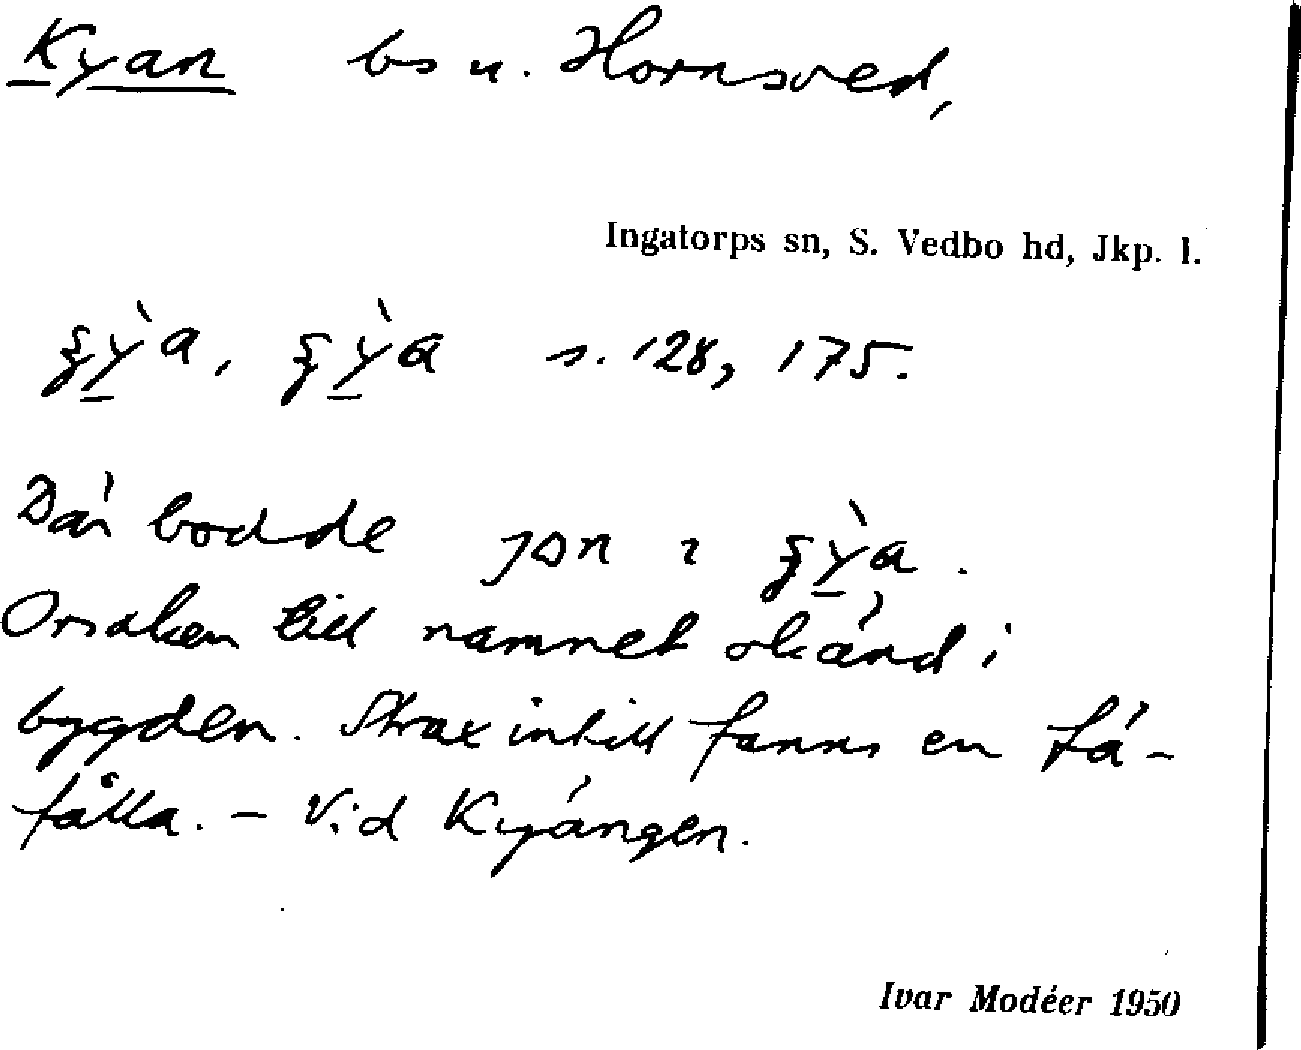 Kyan bs u. Hornsved,
Ingatorps sn, S. Vedbo hd, Jkp. l.
s. 128, 175.
Där bodde
Orsaken till namnet okänd i
bygden. Strax intill fanns en fä-
fålla. – Vid Kyängen.
Ivar Modéer 1950